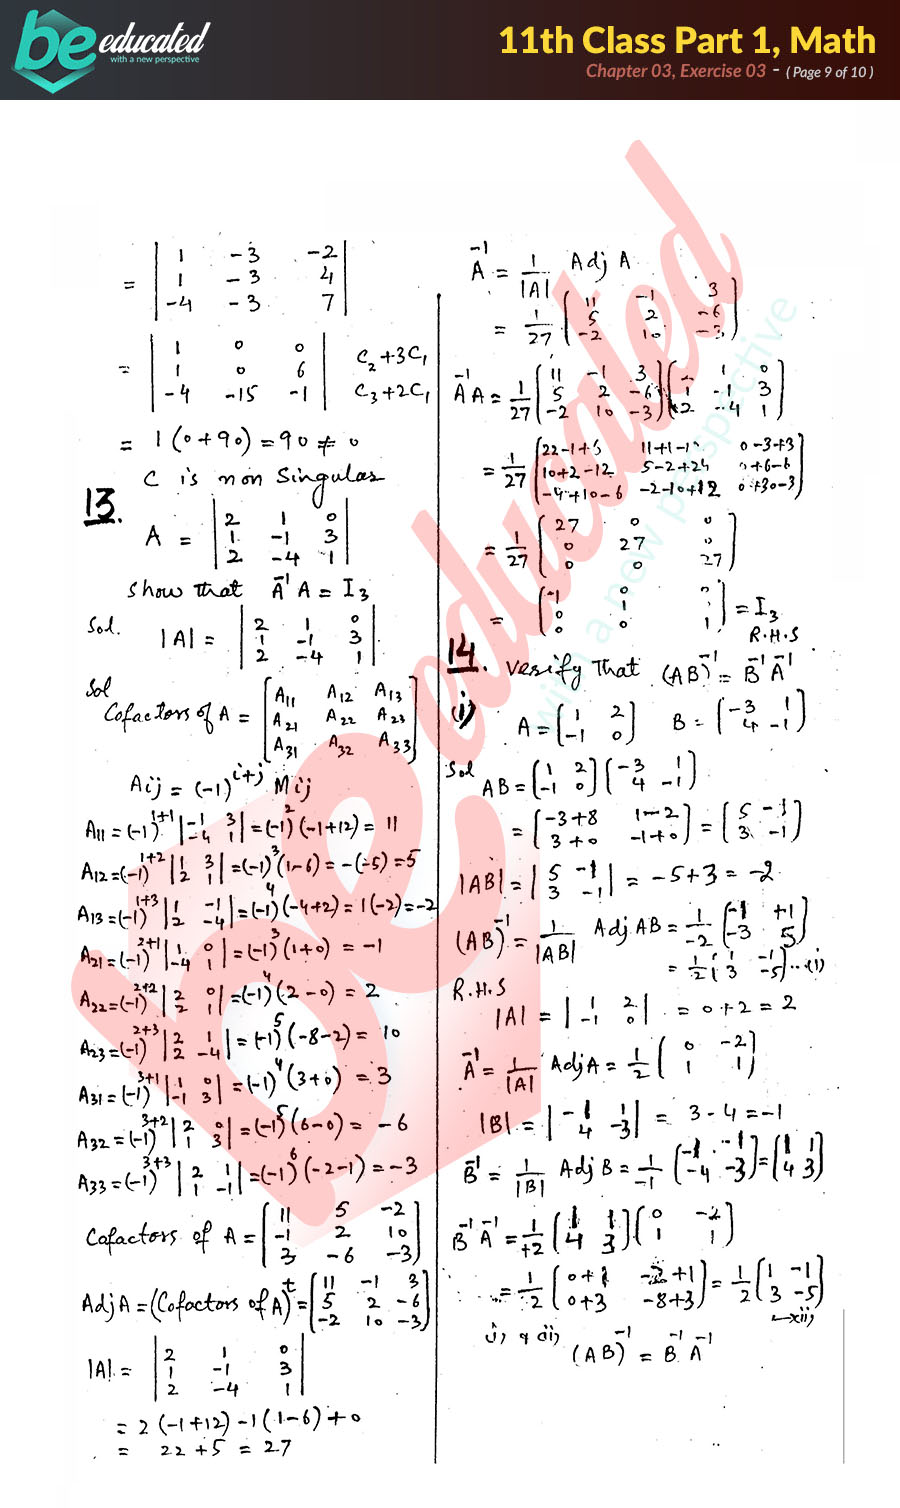 be educated
with a new perspective
11th Class Part 1, Math
Chapter 03, Exercise 03 - ( Page 9 of 10 )
= | 1 -3 -2 |
| 1 -3 4 |
| -4 -3 7 |
= | 1 0 0 |
| 1 0 6 | C₂+3C₁
| -4 -15 -1 | C₃+2C₁
= 1(0+90) = 90 ≠ 0
C is non Singular
13.
A = | 2 1 0 |
| 1 -1 3 |
| 2 -4 1 |
Show that A⁻¹A = I₃
Sol. |A| = | 2 1 0 |
| 1 -1 3 |
| 2 -4 1 |
Sol
Cofactors of A = [ A₁₁ A₁₂ A₁₃ ]
[ A₂₁ A₂₂ A₂₃ ]
[ A₃₁ A₃₂ A₃₃ ]
Aij = (-1)^i+j Mij
A₁₁ = (-1)^1+1 | -1 3 | = (-1)²(-1+12) = 11
| -4 1 |
A₁₂ = (-1)^1+2 | 1 3 | = (-1)³(1-6) = -(-5) = 5
| 2 1 |
A₁₃ = (-1)^1+3 | 1 -1 | = (-1)⁴(-4+2) = 1(-2) = -2
| 2 -4 |
A₂₁ = (-1)^2+1 | 1 0 | = (-1)³(1+0) = -1
| -4 1 |
A₂₂ = (-1)^2+2 | 2 0 | = (-1)⁴(2-0) = 2
| 2 1 |
A₂₃ = (-1)^2+3 | 2 1 | = (-1)⁵(-8-2) = 10
| 2 -4 |
A₃₁ = (-1)^3+1 | 1 0 | = (-1)⁴(3+0) = 3
| -1 3 |
A₃₂ = (-1)^3+2 | 2 0 | = (-1)⁵(6-0) = -6
| 1 3 |
A₃₃ = (-1)^3+3 | 2 1 | = (-1)⁶(-2-1) = -3
| 1 -1 |
Cofactors of A = [ 11 5 -2 ]
[ -1 2 10 ]
[ 3 -6 -3 ]
Adj A = (Cofactors of A)^t = [ 11 -1 3 ]
[ 5 2 -6 ]
[ -2 10 -3 ]
|A| = | 2 1 0 |
| 1 -1 3 |
| 2 -4 1 |
= 2(-1+12) -1(1-6) + 0
= 22 + 5 = 27
A⁻¹ = 1/|A| Adj A
= 1/27 [ 11 -1 3 ]
[ 5 2 -6 ]
[ -2 10 -3 ]
A⁻¹A = 1/27 [ 11 -1 3 ] [ 1 0 ]
[ 5 2 -6 ] [ 1 -1 3 ]
[ -2 10 -3 ] [ 2 -4 1 ]
= 1/27 [ 22-1+5 0-3+3 ]
[ 10+2-12 5-2+24 0+6-6 ]
[ -4+10-6 -2-10+12 0+30-3 ]
= 1/27 [ 27 0 0 ]
[ 0 27 0 ]
[ 0 0 27 ]
= [ 1 0 0 ]
[ 0 1 0 ] = I₃
[ 0 0 1 ] R.H.S
14. Verify that (AB)⁻¹ = B⁻¹A⁻¹
(i) A = [ 1 2 ] B = [ -3 1 ]
[ -1 0 ] [ 4 -1 ]
Sol AB = [ 1 2 ] [ -3 1 ]
[ -1 0 ] [ 4 -1 ]
= [ -3+8 1-2 ] = [ 5 -1 ]
[ 3+0 -1+0 ] [ 3 -1 ]
|AB| = | 5 -1 | = -5+3 = -2
| 3 -1 |
(AB)⁻¹ = 1/|AB| Adj AB = 1/-2 [ -1 +1 ]
[ -3 5 ]
= 1/2 [ 1 -1 ] ...(i)
[ 3 -5 ]
R.H.S
|A| = | 1 2 | = 0+2 = 2
| -1 0 |
A⁻¹ = 1/|A| Adj A = 1/2 [ 0 -2 ]
[ 1 1 ]
|B| = | -1 1 | = 3-4 = -1
| 4 -3 |
B⁻¹ = 1/|B| Adj B = 1/-1 [ -1 -1 ] = [ 1 1 ]
[ -4 -3 ] [ 4 3 ]
B⁻¹A⁻¹ = 1/+2 [ 1 1 ] [ 0 -2 ]
[ 4 3 ] [ 1 1 ]
= 1/2 [ 0+1 -2+1 ] = 1/2 [ 1 -1 ]
[ 0+3 -8+3 ] [ 3 -5 ]
(AB)⁻¹ = B⁻¹A⁻¹
be educated
with a new perspective